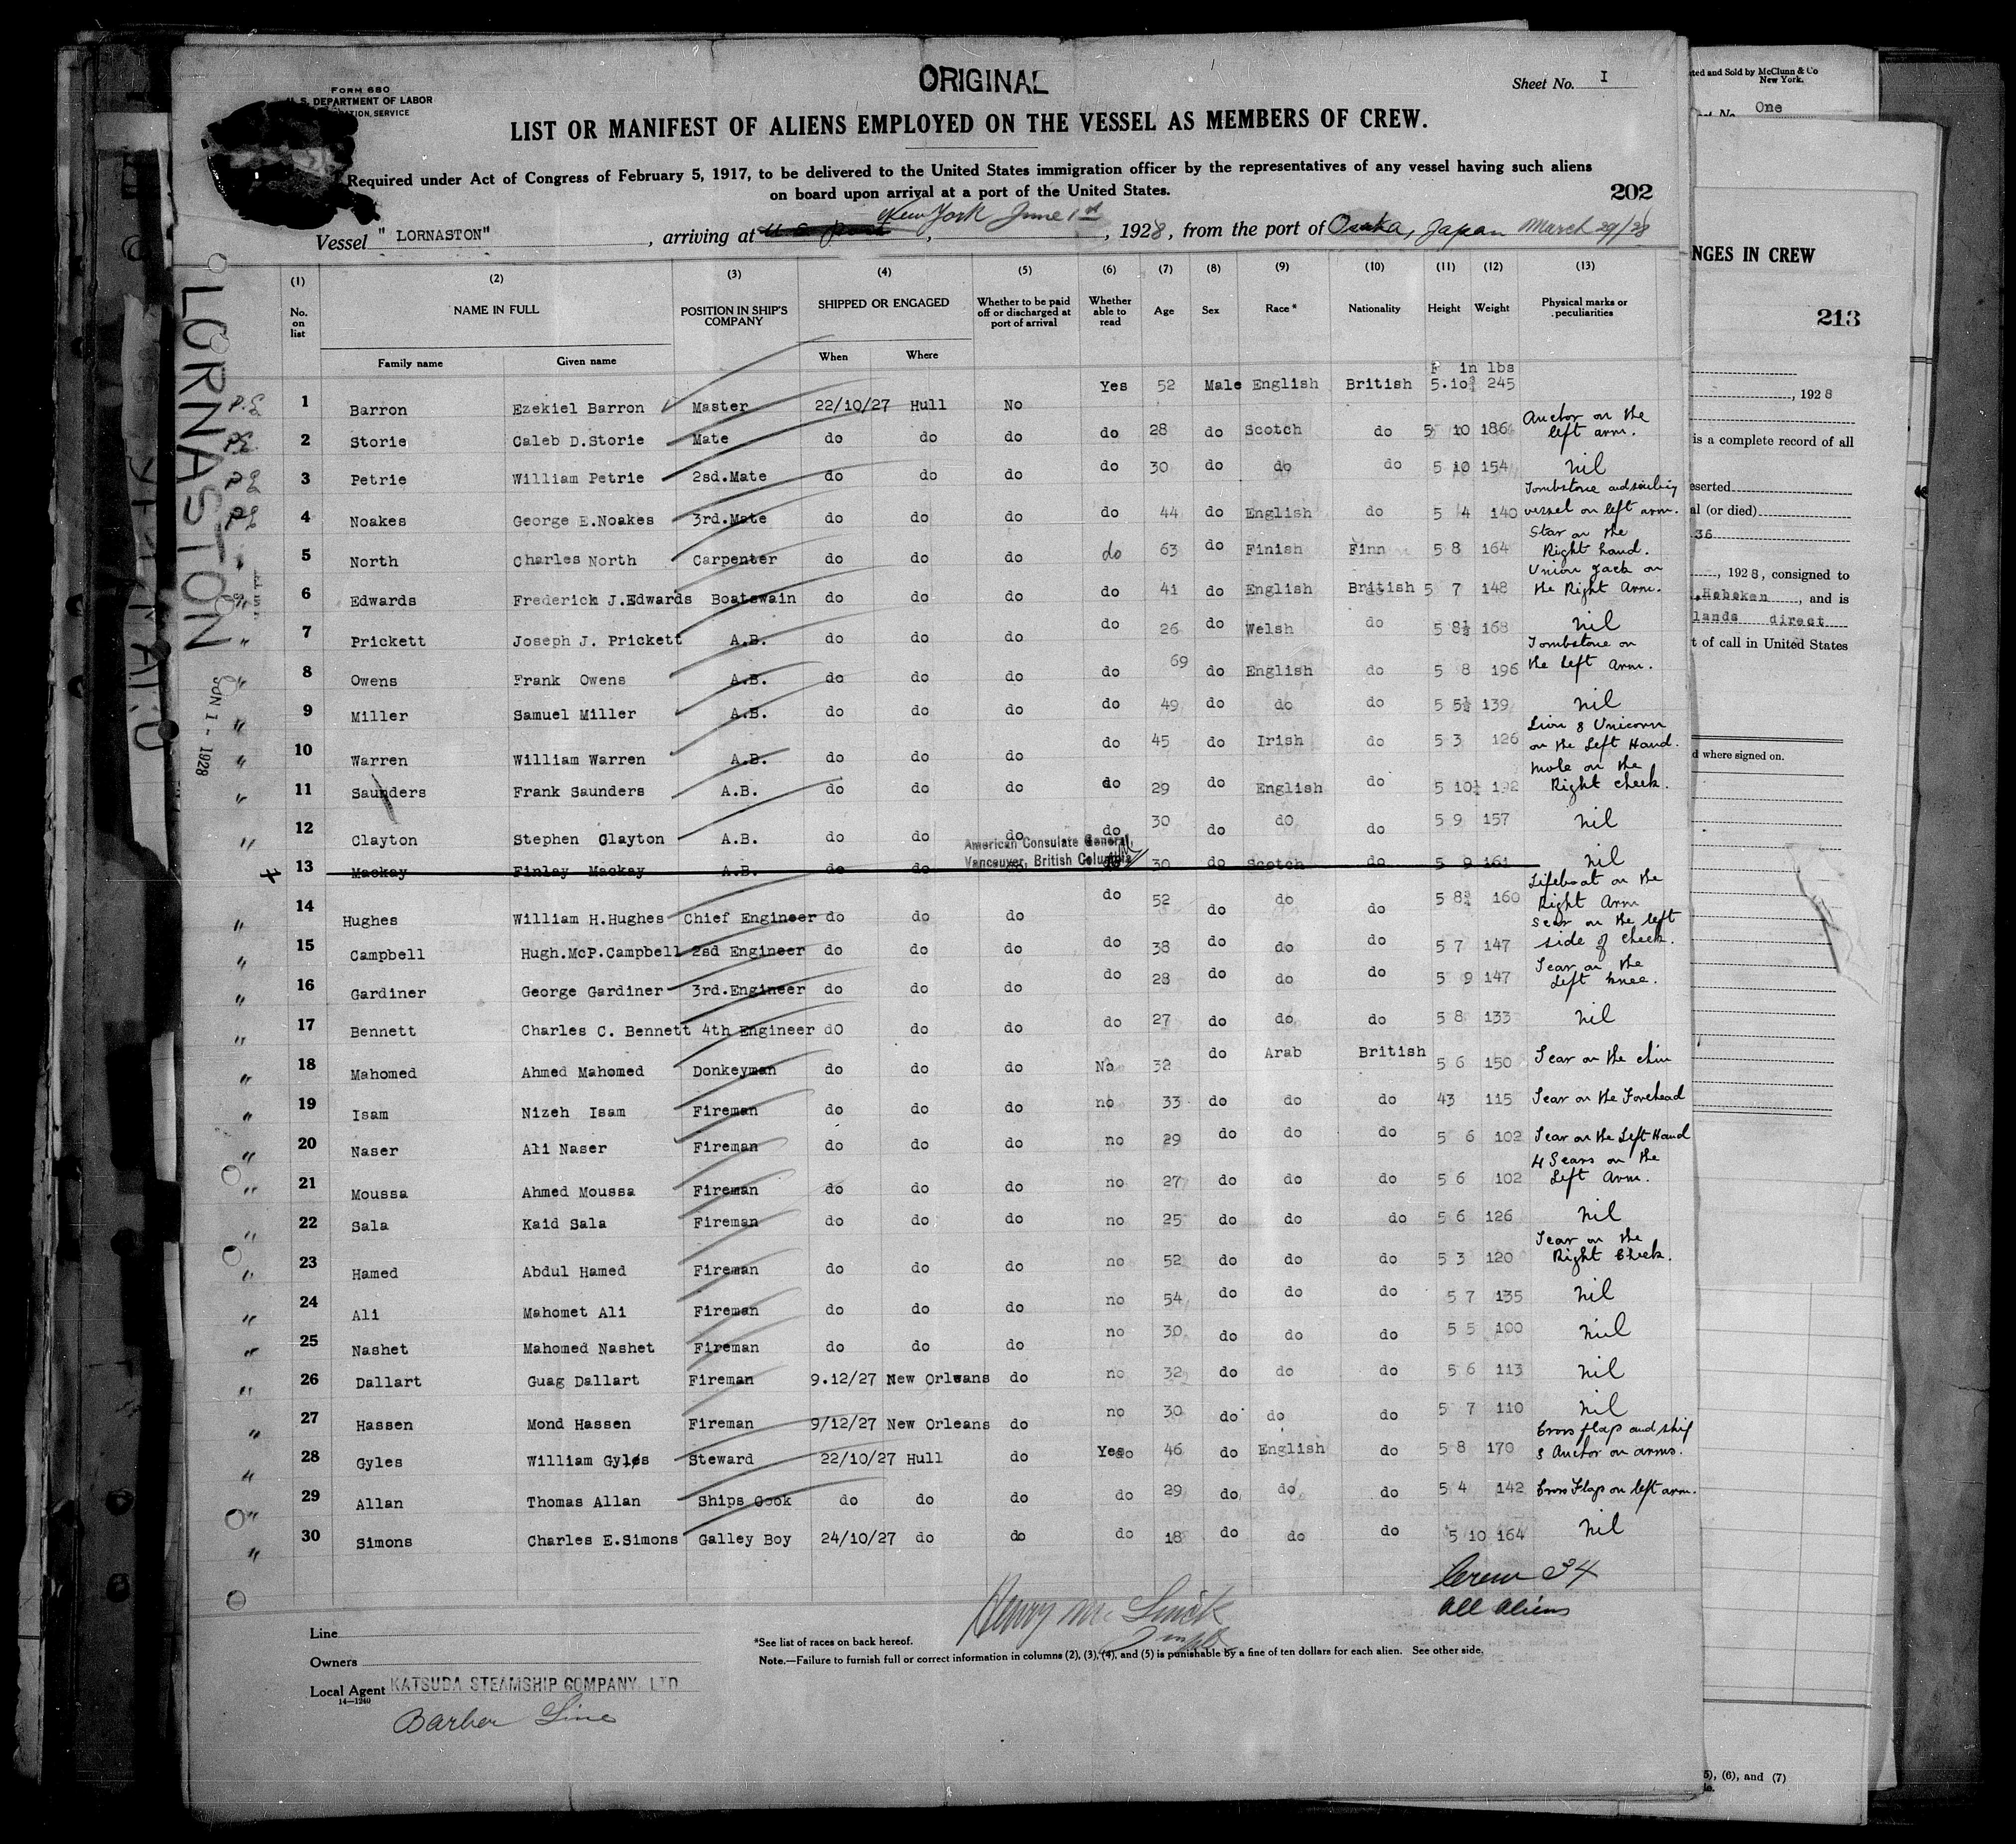 ORIGINAL
Sheet No. I
FORM 680
U. S. DEPARTMENT OF LABOR
IMMIGRATION SERVICE
LIST OR MANIFEST OF ALIENS EMPLOYED ON THE VESSEL AS MEMBERS OF CREW.
Required under Act of Congress of February 5, 1917, to be delivered to the United States immigration officer by the representatives of any vessel having such aliens
on board upon arrival at a port of the United States.
202
Vessel " LORNASTON" , arriving at New York June 1st , 1928, from the port of Osaka, Japan March 29/28
(1) (2) (3) (4) (5) (6) (7) (8) (9) (10) (11) (12) (13)
No. on list NAME IN FULL POSITION IN SHIP'S COMPANY SHIPPED OR ENGAGED Whether to be paid off or discharged at port of arrival Whether able to read Age Sex Race* Nationality Height Weight Physical marks or peculiarities
Family name Given name When Where
in lbs
1 Barron Ezekiel Barron Master 22/10/27 Hull No Yes 52 Male English British 5.10¾ 245
2 Storie Caleb D.Storie Mate do do do do 28 do Scotch do 5 10 186 Anchor on the left arm.
3 Petrie William Petrie 2sd.Mate do do do do 30 do do do 5 10 154 nil
4 Noakes George E.Noakes 3rd.Mate do do do do 44 do English do 5 4 140 Tombstone and sinking vessel on left arm.
5 North Charles North Carpenter do do do do 63 do Finish Finn 5 8 164 Star on the Right hand.
6 Edwards Frederick J.Edwards Boatswain do do do do 41 do English British 5 7 148 Union Jack on the Right Arm.
7 Prickett Joseph J. Prickett A.B. do do do do 26 do Welsh do 5 8½ 168 nil
8 Owens Frank Owens A.B. do do do do 69 do English do 5 8 196 Tombstone on the left arm.
9 Miller Samuel Miller A.B. do do do do 49 do do do 5 5½ 139 nil
10 Warren William Warren A.B. do do do do 45 do Irish do 5 3 126 Lion & Unicorn on the Left Hand.
11 Saunders Frank Saunders A.B. do do do do 29 do English do 5 10½ 192 mole on the Right cheek.
12 Clayton Stephen Clayton A.B. do do do do 30 do do do 5 9 157 nil
American Consulate General,
Vancouver, British Columbia
13 Mackay Finlay Mackay A.B. do do do do 30 do Scotch do 5 9 161 nil
14 Hughes William H.Hughes Chief Engineer do do do do 52 do do do 5 8¾ 160 Lifeboat on the Right Arm
15 Campbell Hugh.McP.Campbell 2sd Engineer do do do do 38 do do do 5 7 147 scar on the left side of cheek.
16 Gardiner George Gardiner 3rd.Engineer do do do do 28 do do do 5 9 147 Scar on the Left knee.
17 Bennett Charles C. Bennett 4th Engineer dO do do do 27 do do do 5 8 133 nil
18 Mahomed Ahmed Mahomed Donkeyman do do do No 32 do Arab British 5 6 150 Scar on the chin
19 Isam Nizeh Isam Fireman do do do no 33 do do do 43 115 Scar on the Forehead
20 Naser Ali Naser Fireman do do do no 29 do do do 5 6 102 Scar on the Left Hand
21 Moussa Ahmed Moussa Fireman do do do no 27 do do do 5 6 102 4 Scars on the Left Arm.
22 Sala Kaid Sala Fireman do do do no 25 do do do 5 6 126 nil
23 Hamed Abdul Hamed Fireman do do do no 52 do do do 5 3 120 Scar on the Right Cheek.
24 Ali Mahomet Ali Fireman do do do no 54 do do do 5 7 135 nil
25 Nashet Mahomed Nashet Fireman do do do no 30 do do do 5 5 100 nil
26 Dallart Guag Dallart Fireman 9.12/27 New Orleans do no 32 do do do 5 6 113 nil
27 Hassen Mond Hassen Fireman 9/12/27 New Orleans do no 30 do do do 5 7 110 nil
28 Gyles William Gyles Steward 22/10/27 Hull do Yes 46 do English do 5 8 170 Cross flags and ship & Anchor on arms.
29 Allan Thomas Allan Ships Cook do do do do 29 do do do 5 4 142 Cross Flags on left arm.
30 Simons Charles E.Simons Galley Boy 24/10/27 do do do 18 do do do 5 10 164 nil
Crew 34
All Aliens
Line
Owners
Local Agent KATSUDA STEAMSHIP COMPANY, LTD
14—1240
Barber Line
*See list of races on back hereof.
Note.—Failure to furnish full or correct information in columns (2), (3), (4), and (5) is punishable by a fine of ten dollars for each alien. See other side.
LORNASTON
JUN 1 - 1928
ted and Sold by McClunn & Co
New York.
One
NGES IN CREW
213
, 1928
is a complete record of all
eserted
al (or died)
36
, 1928, consigned to
Hoboken, and is
lands direct
t of call in United States
d where signed on.
5), (6), and (7)